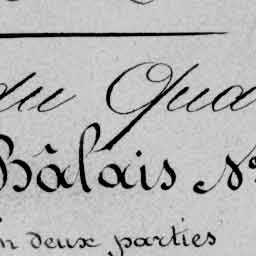 du Qua
Bâlais No
n deux parties